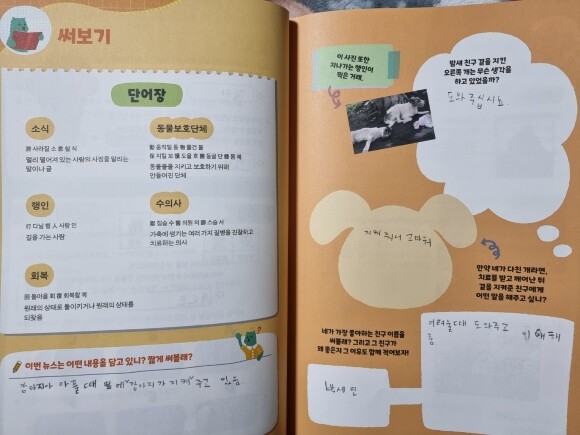 써보기
단어장
소식
消 사라질 소 息 쉴 식
멀리 떨어져 있는 사람의 사정을 알리는
말이나 글
동물보호단체
動 움직일 동 物 물건 물
保 지킬 보 護 도울 호 團 둥글 단 體 몸 체
동물들을 지키고 보호하기 위해
만들어진 단체
행인
行 다닐 행 人 사람 인
길을 가는 사람
수의사
獸 짐승 수 醫 의원 의 師 스승 사
가축에 생기는 여러 가지 질병을 진찰하고
치료하는 의사
회복
回 돌아올 회 復 회복할 복
원래의 상태로 돌이키거나 원래의 상태를
되찾음
이번 뉴스는 어떤 내용을 담고 있니? 짧게 써볼래?
강아지가 아플 때 옆에 강아지가 지켜 주고 있음
이 사진 또한
지나가는 행인이
찍은 거래.
밤새 친구 곁을 지킨
오른쪽 개는 무슨 생각을
하고 있었을까?
도와주십시오.
지켜 줘서 고마워
만약 네가 다친 개라면,
치료를 받고 깨어난 뒤
곁을 지켜준 친구에게
어떤 말을 해주고 싶니?
네가 가장 좋아하는 친구 이름을
써볼래? 그리고 그 친구가
왜 좋은지 그 이유도 함께 적어보자!
어려울 때 도와주고
해